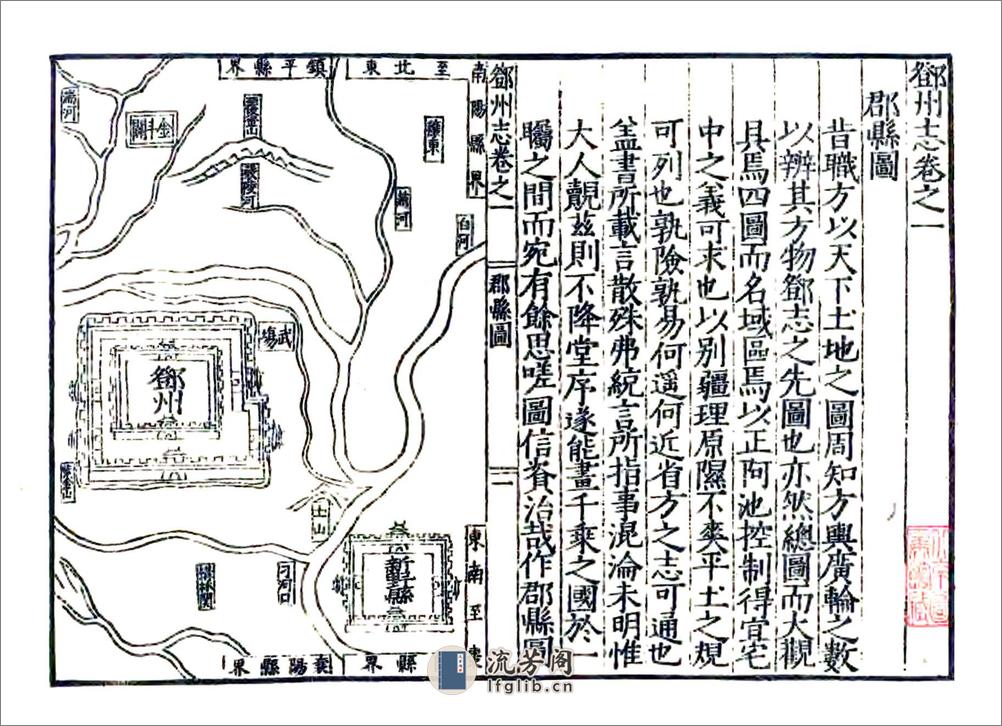 鄧州志卷之一
郡縣圖
昔職方以天下土地之圖周知方輿廣輪之數
以辨其方物鄧志之先圖也亦然總圖而大觀
具焉四圖而名域區焉以正阿池控制得宜宅
中之義可求也以别疆理原隰不爽平土之規
可列也孰險孰易何遥何近省方之志可通也
盖書所載言散殊弗統言所指事混淪未明惟
大人覿茲則不降堂序遂能畫千乘之國於一
矚之間而宛有餘思嗟圖信資治哉作郡縣圖
鄧州志卷之一
郡縣圖
一
南陽縣界
東南至
至北東
鎮平縣界
縣界
襄陽縣界
白河
穰東
武場
鄧州
土山
新野縣
刁河口
流芳阁
lfglib.cn